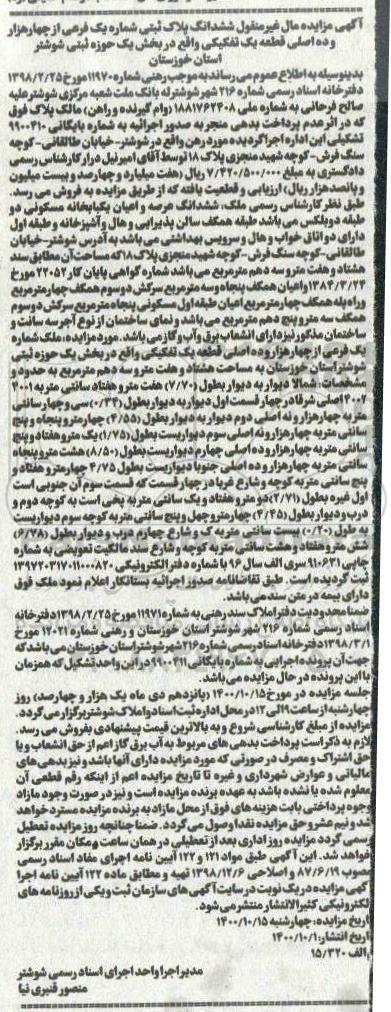 آگهی مزایده مال غیر منقول ششدانگ پلاک ثبتی شماره یک فرعی از چهارهزار
و ده اصلی قطعه یک تفکیکی واقع در بخش یک حوزه ثبتی شوشتر
استان خوزستان
بدینوسیله به اطلاع عموم می رساند به موجب رهنی شماره ۱۱۹۷۰ مورخ ۱۳۹۸/۲/۲۵
دفترخانه اسناد رسمی شماره ۲۱۶ شهر شوشتر له بانک ملت شعبه مرکزی شوشتر علیه
صالح فرحانی به شماره ملی ۱۸۸۱۷۶۲۴۰۸ (وام گیرنده و راهن) مالک پلاک فوق
که در اثر عدم پرداخت بدهی منجر به صدور اجرائیه به شماره بایگانی ۹۹۰۰۴۱۰
تشکیلی این اداره اجرا گردیده مورد رهن واقع در شوشتر-خیابان طالقانی-کوچه
سنگ فرش-کوچه شهید منجزی پلاک ۱۸ توسط آقای امیر نیل مرار کارشناس رسمی
دادگستری به مبلغ ۷/۴۲۰/۵۰۰/۰۰۰ ریال (هفت میلیارد و چهارصد و بیست میلیون
و پانصد هزار ریال) ارزیابی و قطعیت یافته که از طریق مزایده به فروش می رسد.
طبق نظر کارشناس رسمی ملک، ششدانگ عرصه و اعیان یکبابخانه مسکونی دو
طبقه دوبلکس می باشد طبقه همکف سالن پذیرایی و هال و آشپزخانه و طبقه اول
دارای دو اتاق خواب و هال و سرویس بهداشتی می باشد به آدرس شوشتر-خیابان
طالقانی-کوچه سنگ فرش-کوچه شهید منجزی پلاک ۱۸ که مساحت آن مطابق سند
هشتاد و هفت متر و سه دهم متر مربع می باشد شماره گواهی پایان کار ۲۲۰۵۲ مورخ
۱۳۸۴/۳/۲۴ واعیان همکف پنجاه وسه متر مربع سرکش دوسوم همکف چهار متر مربع
وراه پله همکف چهار متر مربع اعیان طبقه اول مسکونی پنجاه متر مربع سرکش دوسوم
همکف سه متر و پنج دهم متر مربع می باشد و نمای ساختمان از نوع آجر سه سانت و
ساختمان مذکور نیز دارای انشعاب برق و آب و گاز می باشد. مورد مزایده: ملک شماره
یک فرعی از چهارهزار و ده اصلی قطعه یک تفکیکی واقع در بخش یک حوزه ثبتی
شوشتر استان خوزستان به مساحت هشتاد و هفت متر و سه دهم متر مربع به حدود و
مشخصات: شمالا دیوار به دیوار بطول (۷/۷۰) هفت متر و هفتاد سانتی متر به ۴۰۰۱
۴۰۰۲ اصلی شرقا در چهار قسمت اول دیوار به دیوار بطول (۰/۳۴) سی و چهار سانتی
متر به چهارهزار و نه اصلی دوم دیوار به دیوار بطول (۴/۵۵) چهار متر و پنجاه و پنج
سانتی متر به چهارهزار و نه اصلی سوم دیواریست بطول (۱/۷۵) یک متر و هفتاد و پنج
سانتی متر به چهارهزار و ده اصلی چهارم دیواریست بطول (۸/۵۰) هشت متر و پنجاه
سانتی متر به چهارهزار و ده اصلی جنوبا دیواریست بطول ۴/۷۵ چهار متر و هفتاد و
پنج سانتی متر به کوچه و شارع غربا در چهار قسمت که قسمت سوم آن جنوبی است
اول غیره بطول (۲/۷۱) دو متر و هفتاد و یک سانتی متر به پخی است به کوچه دوم و
درب و دیوار بطول (۴/۴۵) چهار متر و چهل و پنج سانتی متر به کوچه سوم دیواریست
به طول (۰/۲۰) بیست سانتی متر به ک و شارع چهارم درب و دیوار بطول (۶/۷۸)
شش متر و هفتاد و هشت سانتی متر به کوچه و شارع سند مالکیت تعویضی به شماره
چاپی ۹۱۰۶۳۱ سری الف سال ۹۶ با شماره دفتر الکترونیکی ۱۳۹۷۲۰۳۱۷۰۱۱۰۰۰۸۲۰
ثبت گردیده است. طبق تقاضانامه صدور اجرائیه بستانکار اعلام نمود ملک فوق
دارای بیمه در متن سند می باشد.
ضمنا محدودیت دفتر املاک سند رهنی به شماره ۱۱۹۷۱ مورخ ۱۳۹۸/۲/۲۵ دفترخانه
اسناد رسمی شماره ۲۱۶ شهر شوشتر استان خوزستان و رهنی شماره ۱۲۰۲۱ مورخ
۱۳۹۸/۳/۱ دفترخانه اسناد رسمی شماره ۲۱۶ شهر شوشتر استان خوزستان می باشد که
جهت آن پرونده اجرایی به شماره بایگانی ۹۹۰۰۴۱۱ در این واحد تشکیل که همزمان
با این پرونده در حال مزایده می باشد.
جلسه مزایده در مورخ ۱۴۰۰/۱۰/۱۵ (پانزدهم دی ماه یک هزار و چهارصد) روز
چهارشنبه از ساعت ۹ الی ۱۲ در محل اداره ثبت اسناد و املاک شوشتر برگزار می گردد.
مزایده از مبلغ کارشناسی شروع و به بالاترین قیمت پیشنهادی بفروش می رسد.
لازم به ذکر است پرداخت بدهی های مربوط به آب برق گاز اعم از حق انشعاب و یا
حق اشتراک و مصرف در صورتی که مورد مزایده دارای آنها باشد و نیز بدهی های
مالیاتی و عوارض شهرداری و غیره تا تاریخ مزایده اعم از اینکه رقم قطعی آن
معلوم شده یا نشده باشد به عهده برنده مزایده است و نیز در صورت وجود مازاد
وجوه پرداختی بابت هزینه های فوق از محل مازاد به برنده مزایده مسترد خواهد
شد و نیم عشر و حق مزایده نقدا وصول می گردد. ضمنا چنانچه روز مزایده تعطیل
رسمی گردد مزایده روز اداری بعد از تعطیلی در همان ساعت و مکان مقرر برگزار
خواهد شد. این آگهی طبق مواد ۱۲۱ و ۱۲۲ آیین نامه اجرای مفاد اسناد رسمی
مصوب ۸۷/۶/۱۹ و اصلاحی ۱۳۹۸/۱۲/۶ تهیه و مطابق ماده ۱۲۲ آیین نامه اجرا
آگهی مزایده در یک نوبت در سایت آگهی های سازمان ثبت و یکی از روزنامه های
الکترونیکی کثیرالانتشار منتشر می شود.
تاریخ مزایده: چهارشنبه ۱۴۰۰/۱۰/۱۵
تاریخ انتشار: ۱۴۰۰/۱۰/۱
الف ۱۵/۳۲۰
مدیر اجرا واحد اجرای اسناد رسمی شوشتر
منصور قنبری نیا